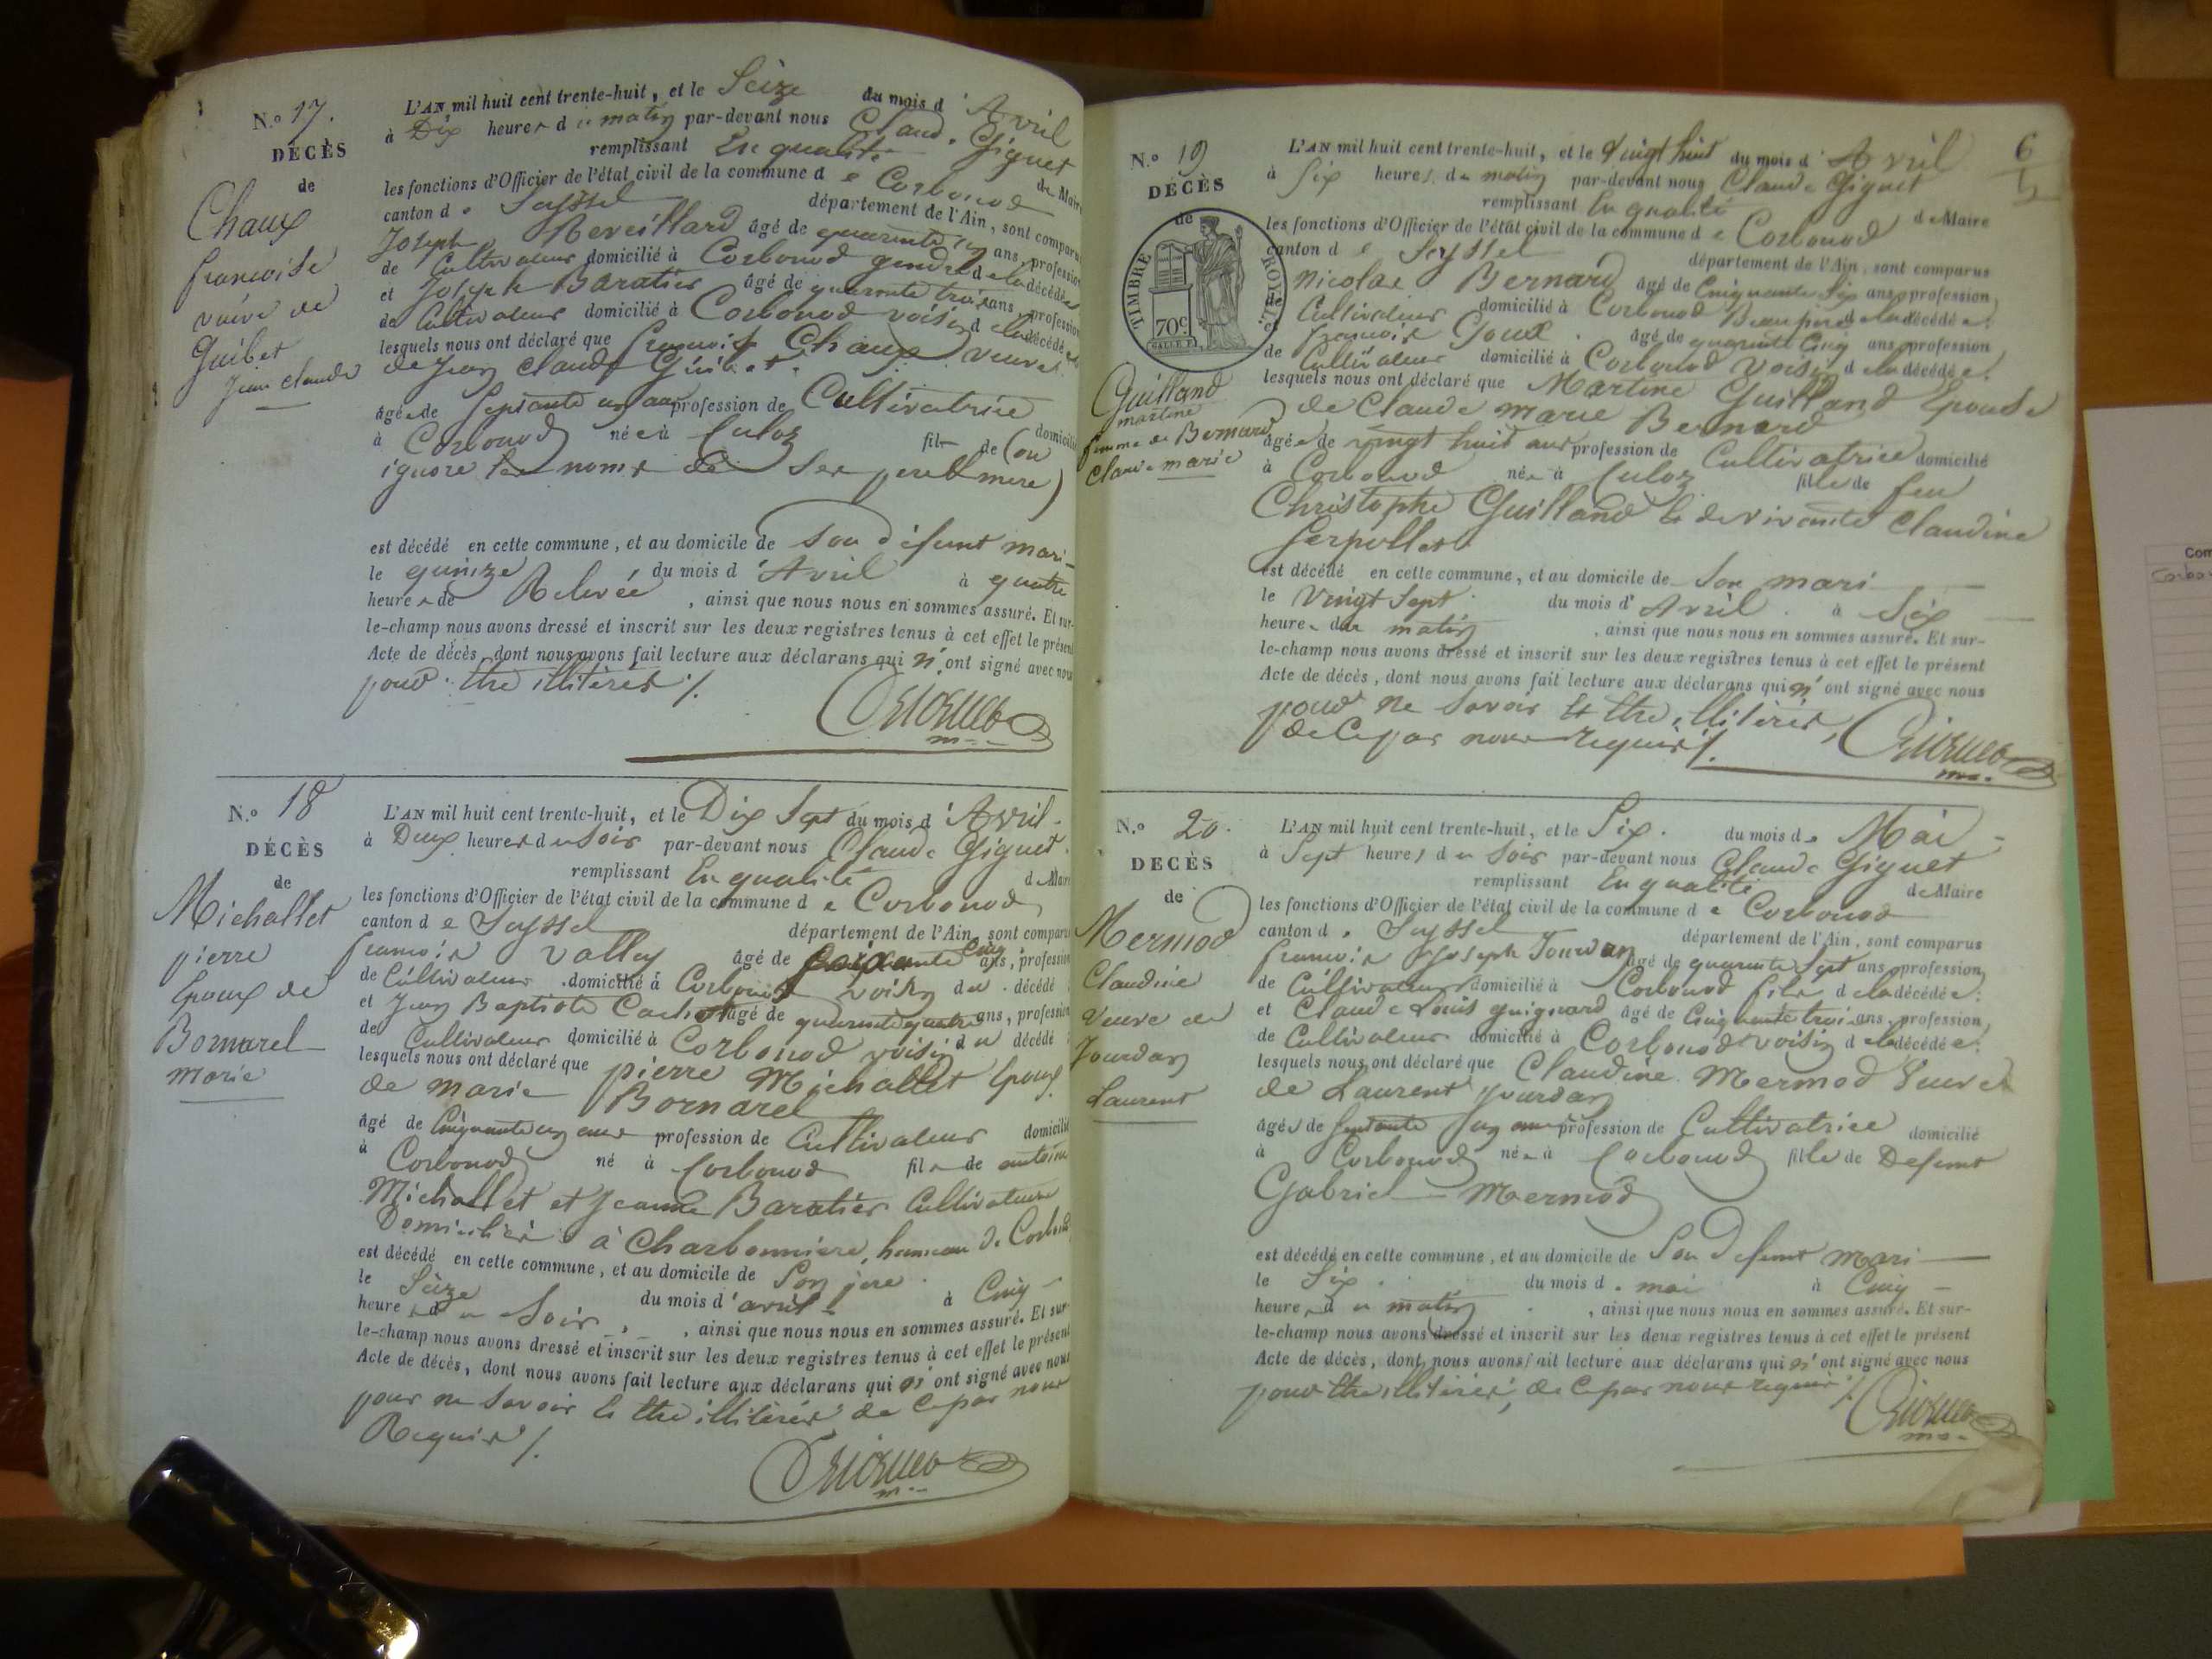 N.o 17.
DÉCÈS
de
Chaux
francoise
veuve de
Guibet
Jean claude
L'AN mil huit cent trente-huit, et le Seize du mois d'Avril
à Dix heures du matin par-devant nous Claude Giguet
remplissant En qualité de Maire
les fonctions d'Officier de l'état civil de la commune de Corbonod
canton de Seyssel département de l'Ain, sont comparus
Joseph Reveillard âgé de quarante un ans, profession
de Cultivateur domicilié à Corbonod gendre de la décédée
et Joseph Baratier âgé de quarante trois ans, profession
de Cultivateur domicilié à Corbonod voisin de la décédée
lesquels nous ont déclaré que françoise Chaux veuve
de Jean Claude Guibet.
âgée de Septante un ans profession de Cultivatrice
domicilié
à Corbonod née à Culoz fil de (on
ignore les noms de ses pere et mere)
est décédé en cette commune, et au domicile de son défunt mari
le quinze du mois d'Avril à quatre
heures de Relevée, ainsi que nous nous en sommes assuré. Et sur-
le-champ nous avons dressé et inscrit sur les deux registres tenus à cet effet le présent
Acte de décès, dont nous avons fait lecture aux déclarans qui n'ont signé avec nous
pour être illitérés ./.
Giguet
m..
N.o 18
DÉCÈS
de
Michallet
pierre
Epoux de
Bornarel
marie
L'AN mil huit cent trente-huit, et le Dix Sept du mois d'Avril
à Deux heures du soir par-devant nous Claude Giguet
remplissant En qualité de Maire
les fonctions d'Officier de l'état civil de la commune de Corbonod
canton de Seyssel département de l'Ain, sont comparus
francois Valley âgé de cinq ans, profession
de Cultivateur domicilié à Corbonod voisin du décédé
et Jean Baptiste Cachot âgé de quarante quatre ans, profession
de Cultivateur domicilié à Corbonod voisin du décédé
lesquels nous ont déclaré que pierre Michallet Epoux
de marie Bornarel
âgé de Cinquante un ans profession de Cultivateur domicilié
à Corbonod né à Corbonod fils de antoine
Michallet et Jeanne Baratier Cultivateurs
Domiciliés à Charbonniere, hameau de Corbonod
est décédé en cette commune, et au domicile de Son père
le Seize du mois d'avril à Cinq
heures du Soir, ainsi que nous nous en sommes assuré. Et sur-
le-champ nous avons dressé et inscrit sur les deux registres tenus à cet effet le présent
Acte de décès, dont nous avons fait lecture aux déclarans qui n'ont signé avec nous
pour ne savoir Et être illitérés de ce par nous
Requis ./.
Giguet
m..
6
N.o 19
DÉCÈS
de
TIMBRE ROYAL
70c.
Guilland
martine
femme de Bernard
Claude marie
L'AN mil huit cent trente-huit, et le Vingt huit du mois d'Avril
à Six heures du matin par-devant nous Claude Giguet
remplissant En qualité de Maire
les fonctions d'Officier de l'état civil de la commune de Corbonod
canton de Seyssel département de l'Ain, sont comparus
Nicolas Bernard âgé de Cinquante Six ans, profession
de Cultivateur domicilié à Corbonod Beau pere de la décédée.
et francois Goux âgé de quarante Cinq ans, profession
de Cultivateur domicilié à Corbonod Voisin de la décédée.
lesquels nous ont déclaré que Martine Guilland Epouse
de Claude marie Bernard
âgée de vingt huit ans profession de Cultivatrice domicilié
à Corbonod née à Culoz fille de feu
Christophe Guilland Et de vivante Claudine
Serpollet
est décédé en cette commune, et au domicile de Son mari
le Vingt Sept du mois d'Avril à Six
heures du matin, ainsi que nous nous en sommes assuré. Et sur-
le-champ nous avons dressé et inscrit sur les deux registres tenus à cet effet le présent
Acte de décès, dont nous avons fait lecture aux déclarans qui n'ont signé avec nous
pour ne savoir Et être illitérés,
de ce par nous requis ./.
Giguet
m..
N.o 20.
DÉCÈS
de
Mermod
Claudine
Veuve de
Jourdan
Laurent
L'AN mil huit cent trente-huit, et le Six du mois de Mai
à Sept heures du Soir par-devant nous Claude Giguet
remplissant En qualité de Maire
les fonctions d'Officier de l'état civil de la commune de Corbonod
canton de Seyssel département de l'Ain, sont comparus
francois Joseph Jourdan âgé de quarante Sept ans, profession
de Cultivateur domicilié à Corbonod fils de la décédée.
et Claude Louis guignard âgé de Cinquante trois ans, profession
de Cultivateur domicilié à Corbonod voisin de la décédée.
lesquels nous ont déclaré que Claudine Mermod Veuve
de Laurent Jourdan
âgée de Septante ans profession de Cultivatrice domicilié
à Corbonod née à Corbonod fille de Defunt
Gabriel Mermod
est décédé en cette commune, et au domicile de Son Defunt Mari
le Six du mois de mai à Cinq
heures du matin, ainsi que nous nous en sommes assuré. Et sur-
le-champ nous avons dressé et inscrit sur les deux registres tenus à cet effet le présent
Acte de décès, dont nous avons fait lecture aux déclarans qui n'ont signé avec nous
pour être illitérés, de ce par nous requis ./.
Giguet
m..
Com